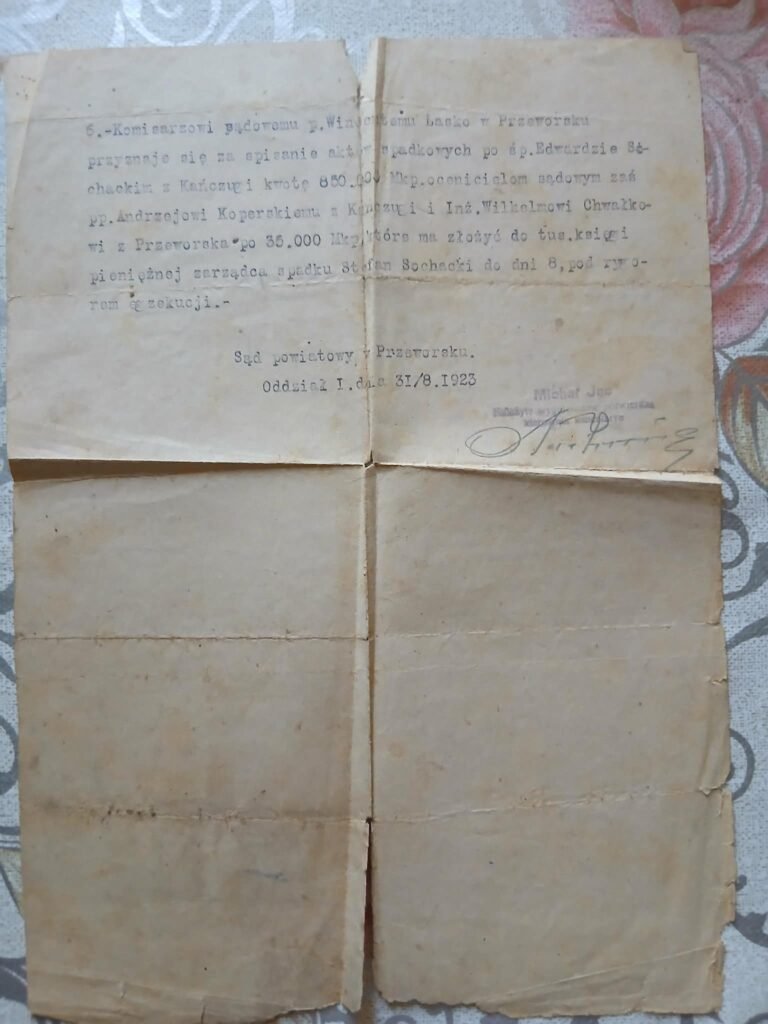 6.-Komisarzowi sądowemu p.Wincentemu Lasko w Przeworsku
przyznaje się za spisanie aktów spadkowych po śp.Edwardzie So-
chackim z Kańczugi kwotę 850.000 Mkp.ocenicielom sądowym zaś
pp.Andrzejowi Koperskiemu z Kańczugi i Inż.Wilhelmowi Chwałko-
wi z Przeworska po 35.000 Mkp,które ma złożyć do tus.księgi
pieniężnej zarządca spadku Stefan Sochacki do dni 8,pod rygo-
rem egzekucji.-
Sąd powiatowy w Przeworsku.
Oddział I.dnia 31/8.1923
Michał Jus